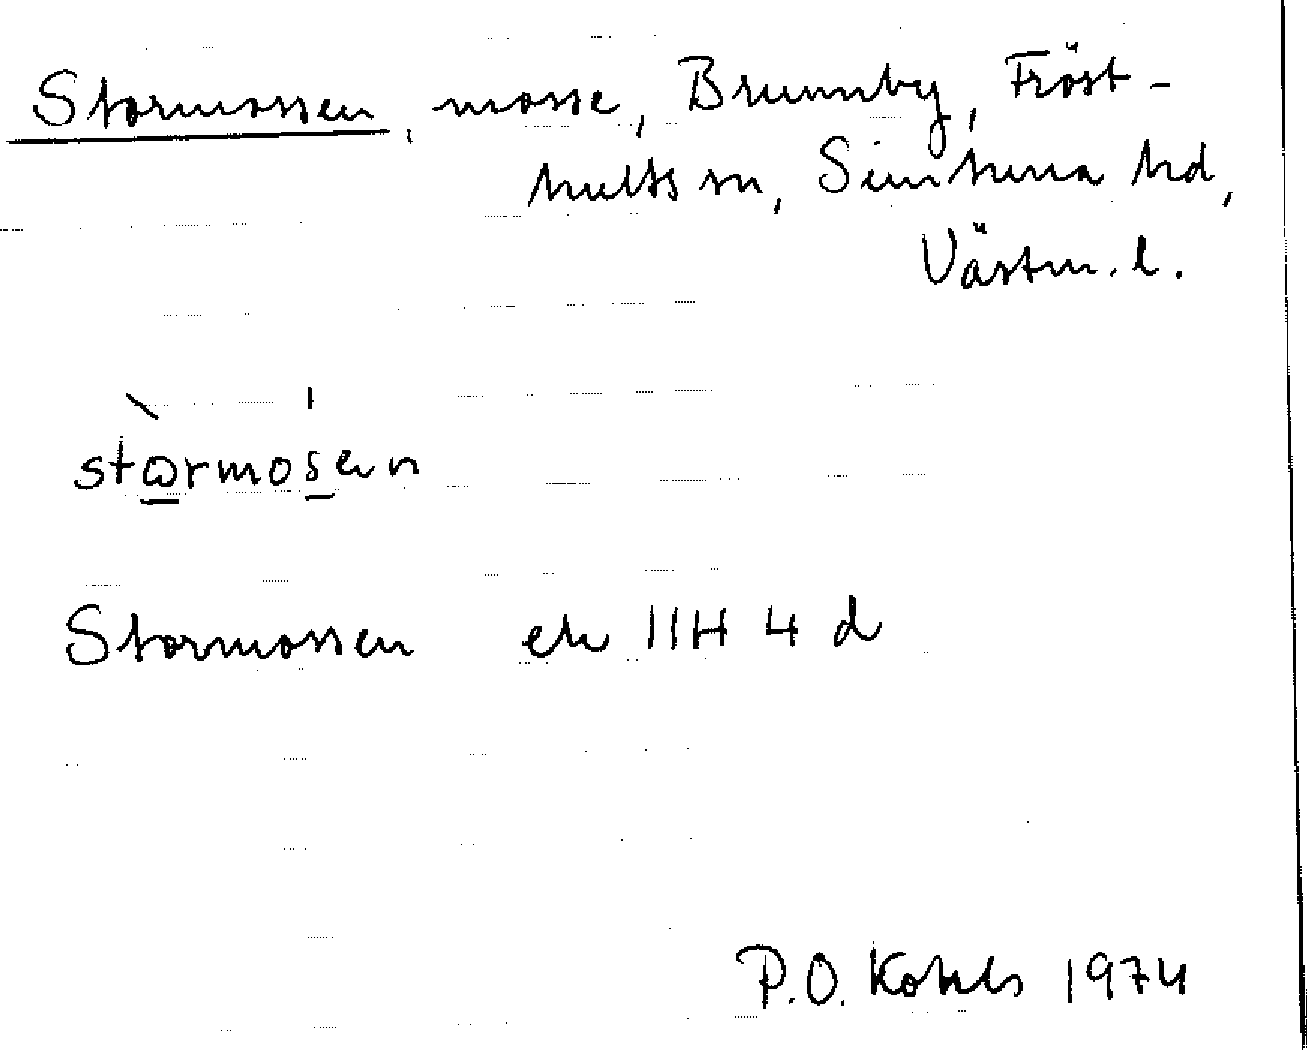 Stormossen, mosse, Brunnby, Fröst-
hults sn, Simtuna hd,
Västm. l.
stɷrmosen
Stormossen ek 11H 4 d
P.O. Kohls 1974